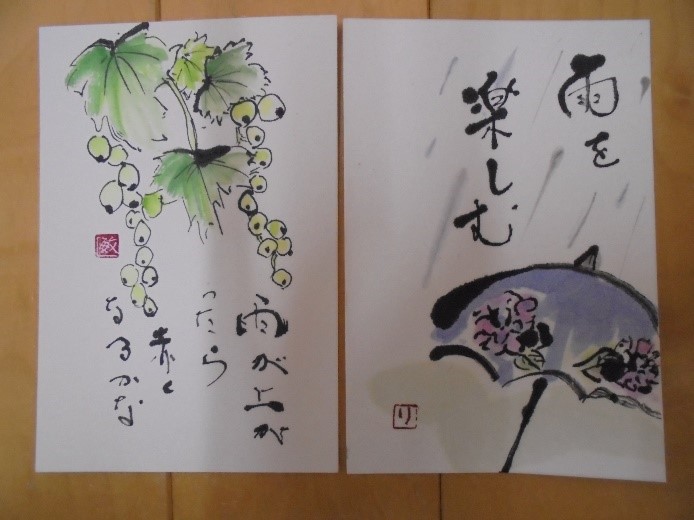 雨が上が
ったら
赤く
なるかな
敏
雨を
楽しむ
り